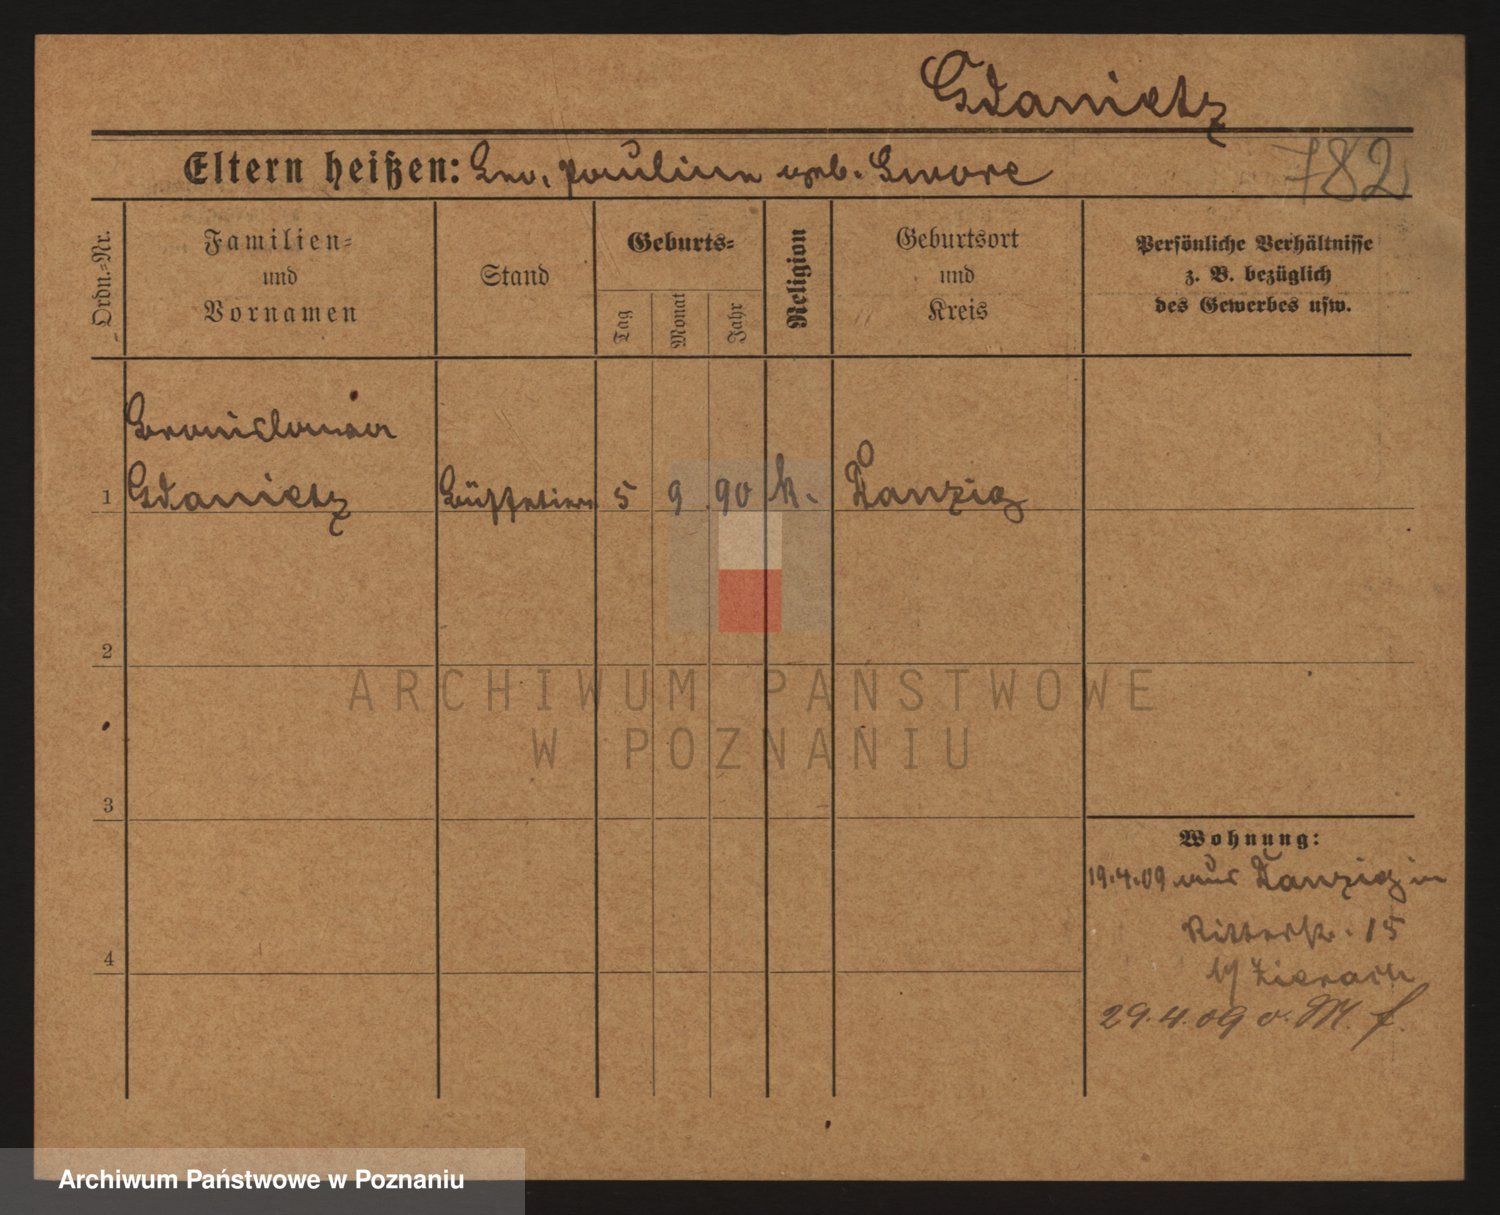 Gdanietz
Eltern heißen: Leo, Pauline geb. Gwore
782
Ordn.-Nr.
Familien-
und
Vornamen
Stand
Geburts-
Tag
Monat
Jahr
Religion
Geburtsort
und
Kreis
Persönliche Verhältnisse
z. B. bezüglich
des Gewerbes usw.
Bronislawa
1 Gdanietz Büffetiere 5 9 90 k. Danzig
2
ARCHIWUM PAŃSTWOWE
W POZNANIU
3
Wohnung:
19.4.09 aus Danzig in
Ritterstr. 15
4
29.4.09 v. M. f.
Archiwum Państwowe w Poznaniu